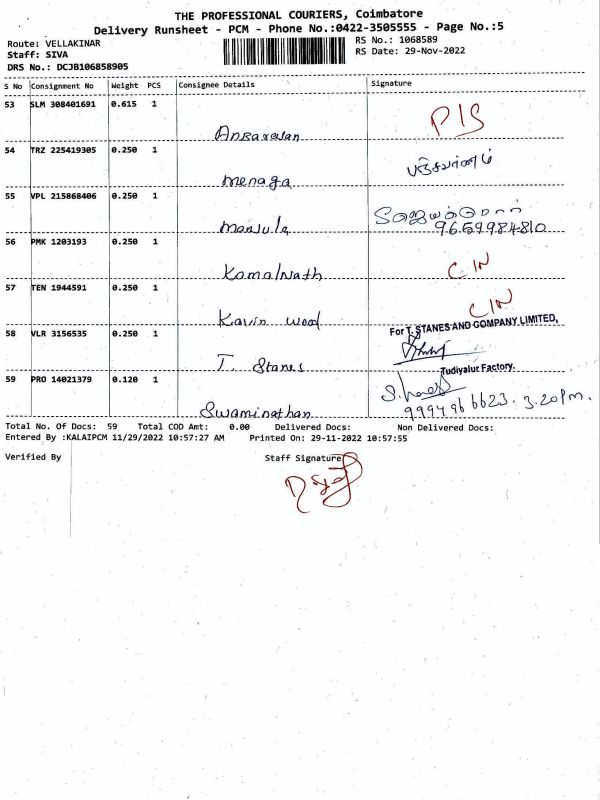 THE PROFESSIONAL COURIERS, Coimbatore
Delivery Runsheet - PCM - Phone No.:0422-3505555 - Page No.:5
Route: VELLAKINAR
RS No.: 1068589
Staff: SIVA
RS Date: 29-Nov-2022
DRS No.: DCJB106858905
S No Consignment No Weight PCS Consignee Details Signature
53 SLM 308401691 0.615 1
54 TRZ 225419305 0.250 1
பஞ்சவர்ணம்
Menaga
55 VPL 215868406 0.250 1
Manjula 9659984810
56 PMK 1203193 0.250 1
CIN
KamalNath
57 TEN 1944591 0.250 1
CIN
Kavin wood
For T. STANES AND COMPANY LIMITED,
58 VLR 3156535 0.250 1
T. Stanes
Tudiyalur Factory.
59 PRO 14021379 0.120 1
Swaminathan 9994966623. 3.20pm.
Total No. Of Docs: 59 Total COD Amt: 0.00 Delivered Docs: Non Delivered Docs:
Entered By :KALAIPCM 11/29/2022 10:57:27 AM Printed On: 29-11-2022 10:57:55
Verified By Staff Signature